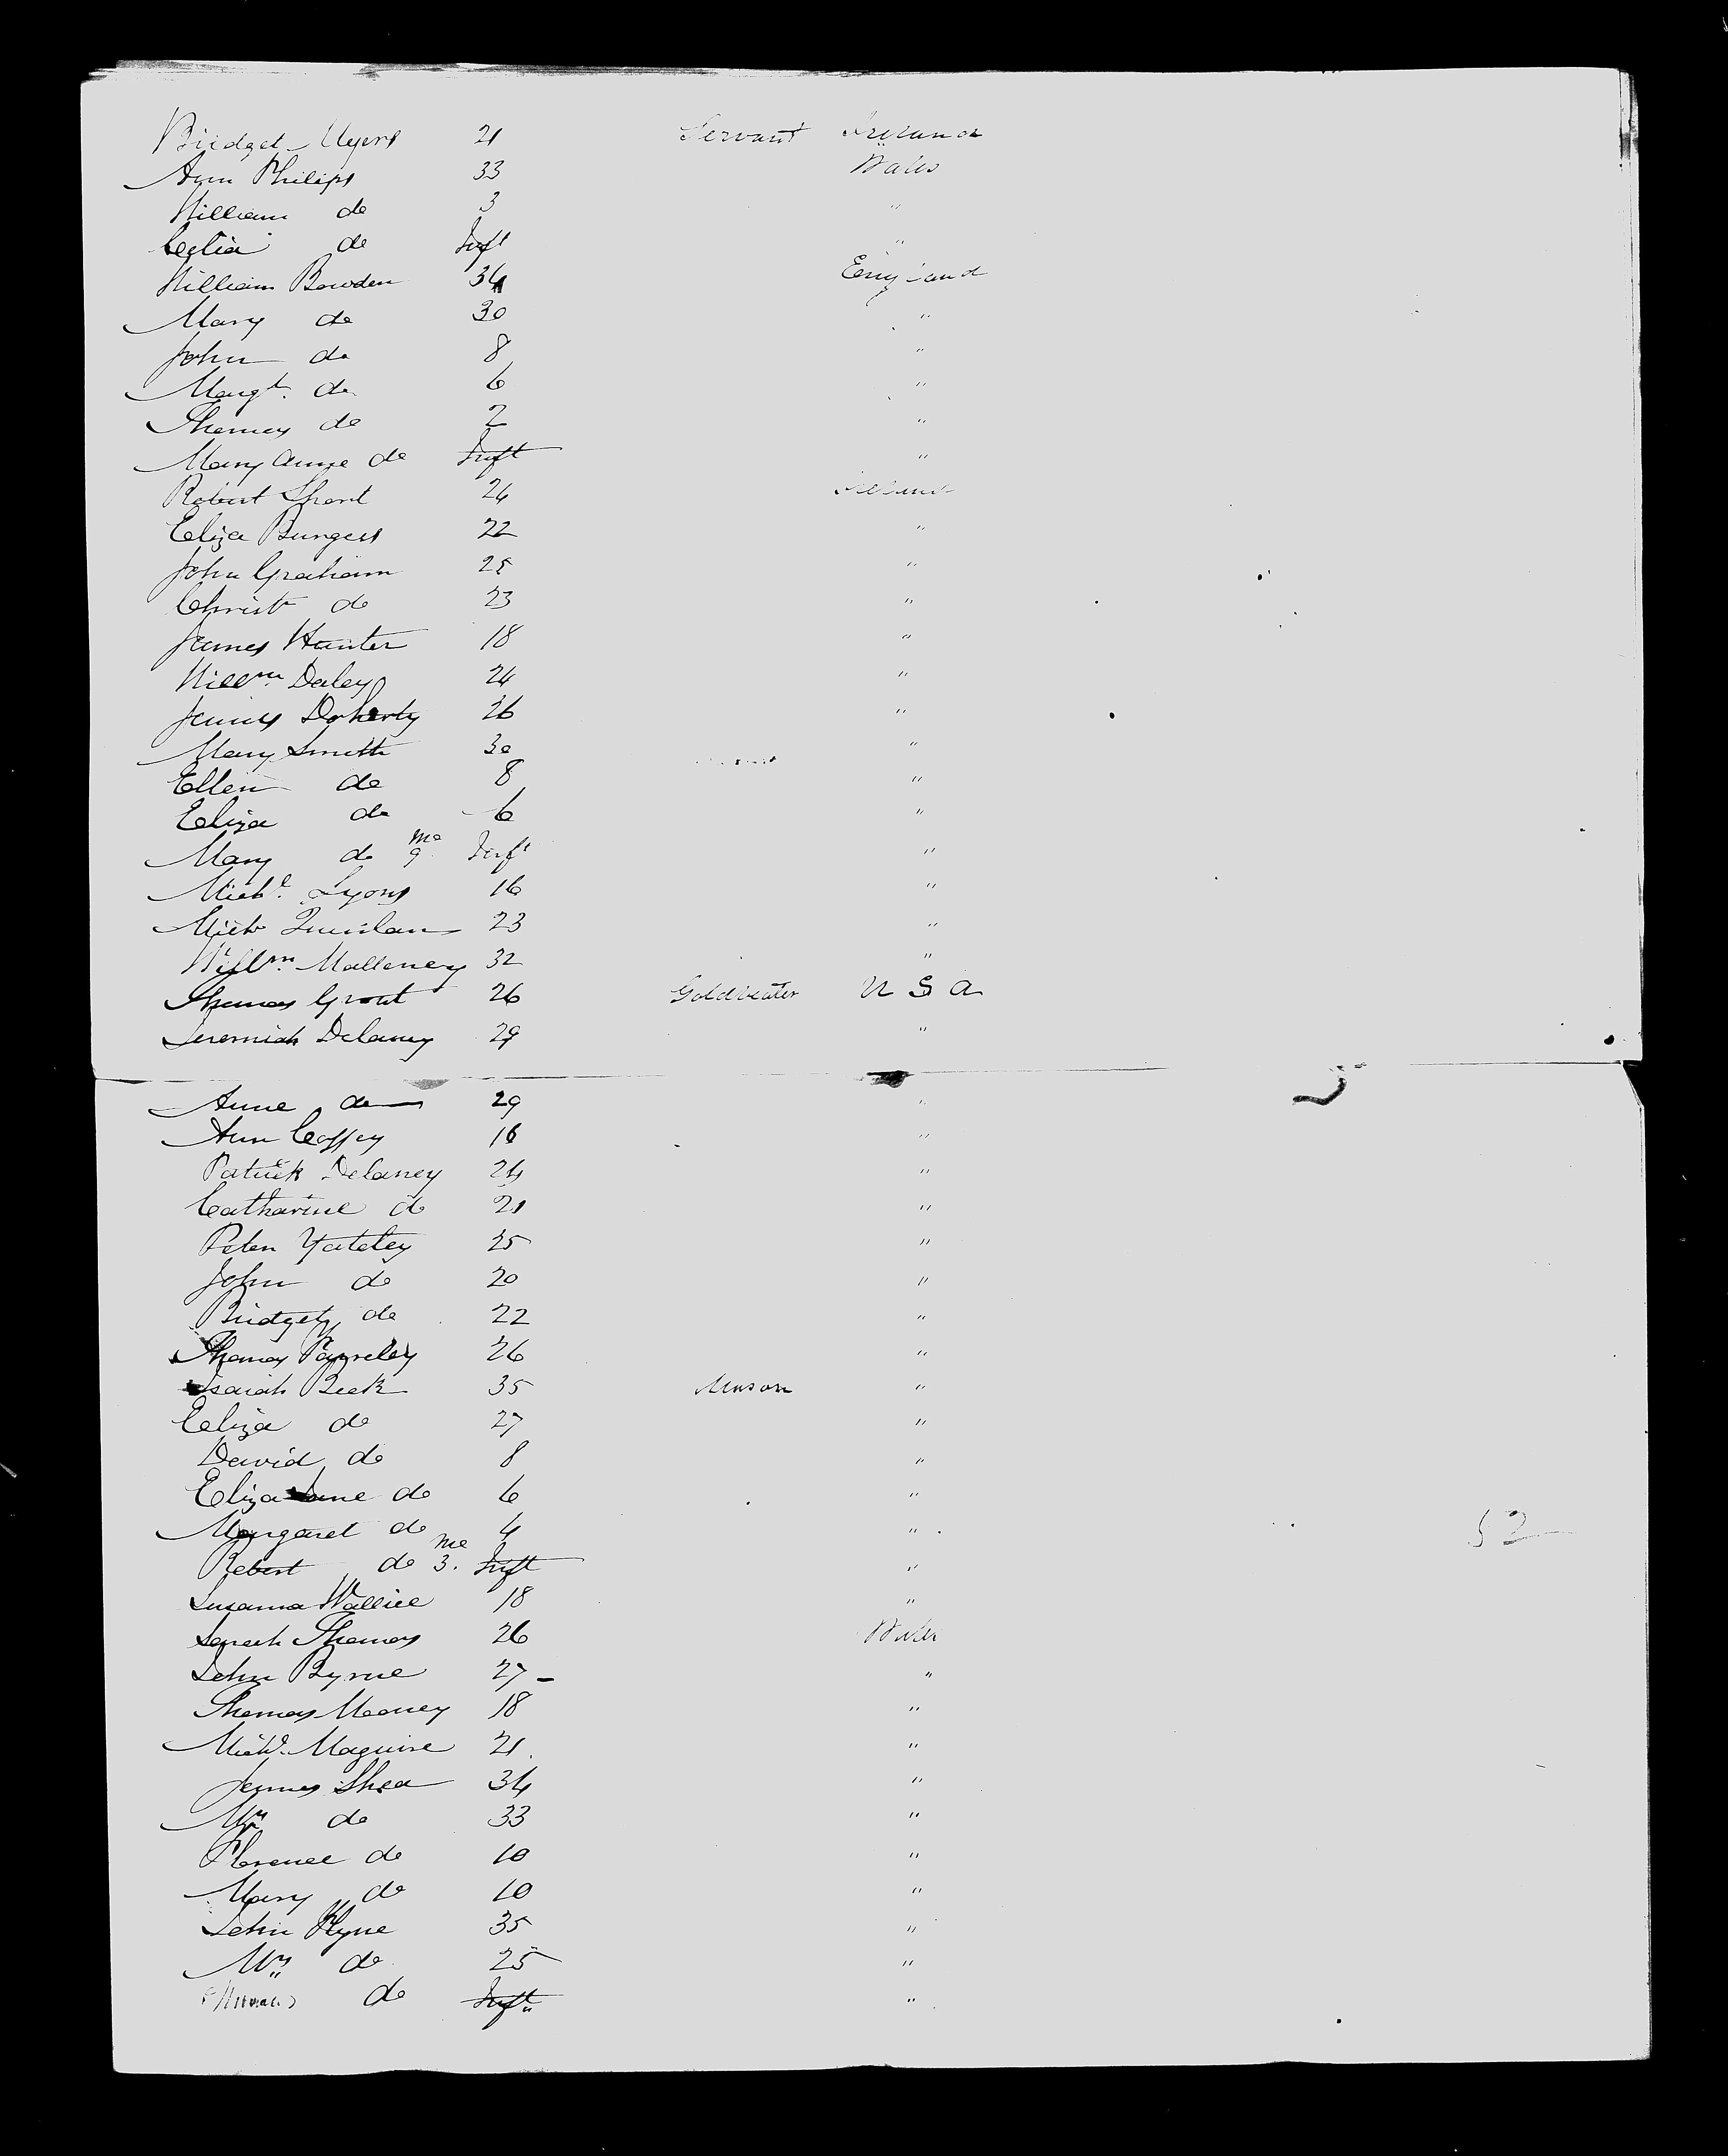 Bridget Myers 21 Servant Ireland
Ann Philips 33 Wales
William do 3 "
Celia do Inft "
William Bowden 34 England
Mary do 30 "
John do 8 "
Margt. do 6 "
Thomas do 2 "
Mary Anne do Inft "
Robert Short 24 Ireland
Eliza Burgess 22 "
John Graham 25 "
Christr do 23 "
James Hunter 18 "
Willm. Daley 24 "
James Doherty 26 "
Mary Smith 30 "
Ellen do 8 "
Eliza do 6 "
Mary do 9 mo Inft "
Michl. Lyons 16 "
Michl Quinlan 23 "
Willm. Malleney 32 "
Thomas Grout 26 Goldbeater U S A
Jeremiah Delaney 29 "
Anne do 29 "
Ann Coffey 16 "
Patrick Delaney 24 "
Catharine do 21 "
Peter Yateley 25 "
John do 20 "
Bridget do 22 "
Thomas 26 "
Isaiah Beek 35 Mason "
Eliza do 27 "
David do 8 "
Eliza Jane do 6 "
Margaret do 4 " 52
Robert do 3. mo Inft "
Susanna Wallice 18 "
Sarah Thomas 26 Wales
John Byrne 27 "
Thomas Mooney 18 "
Michl. Maguire 21 "
James Shea 34 "
Mrs do 33 "
Florence do 10 "
Mary do 10 "
John Flyne 35 "
Mrs do 25 "
do Inft "